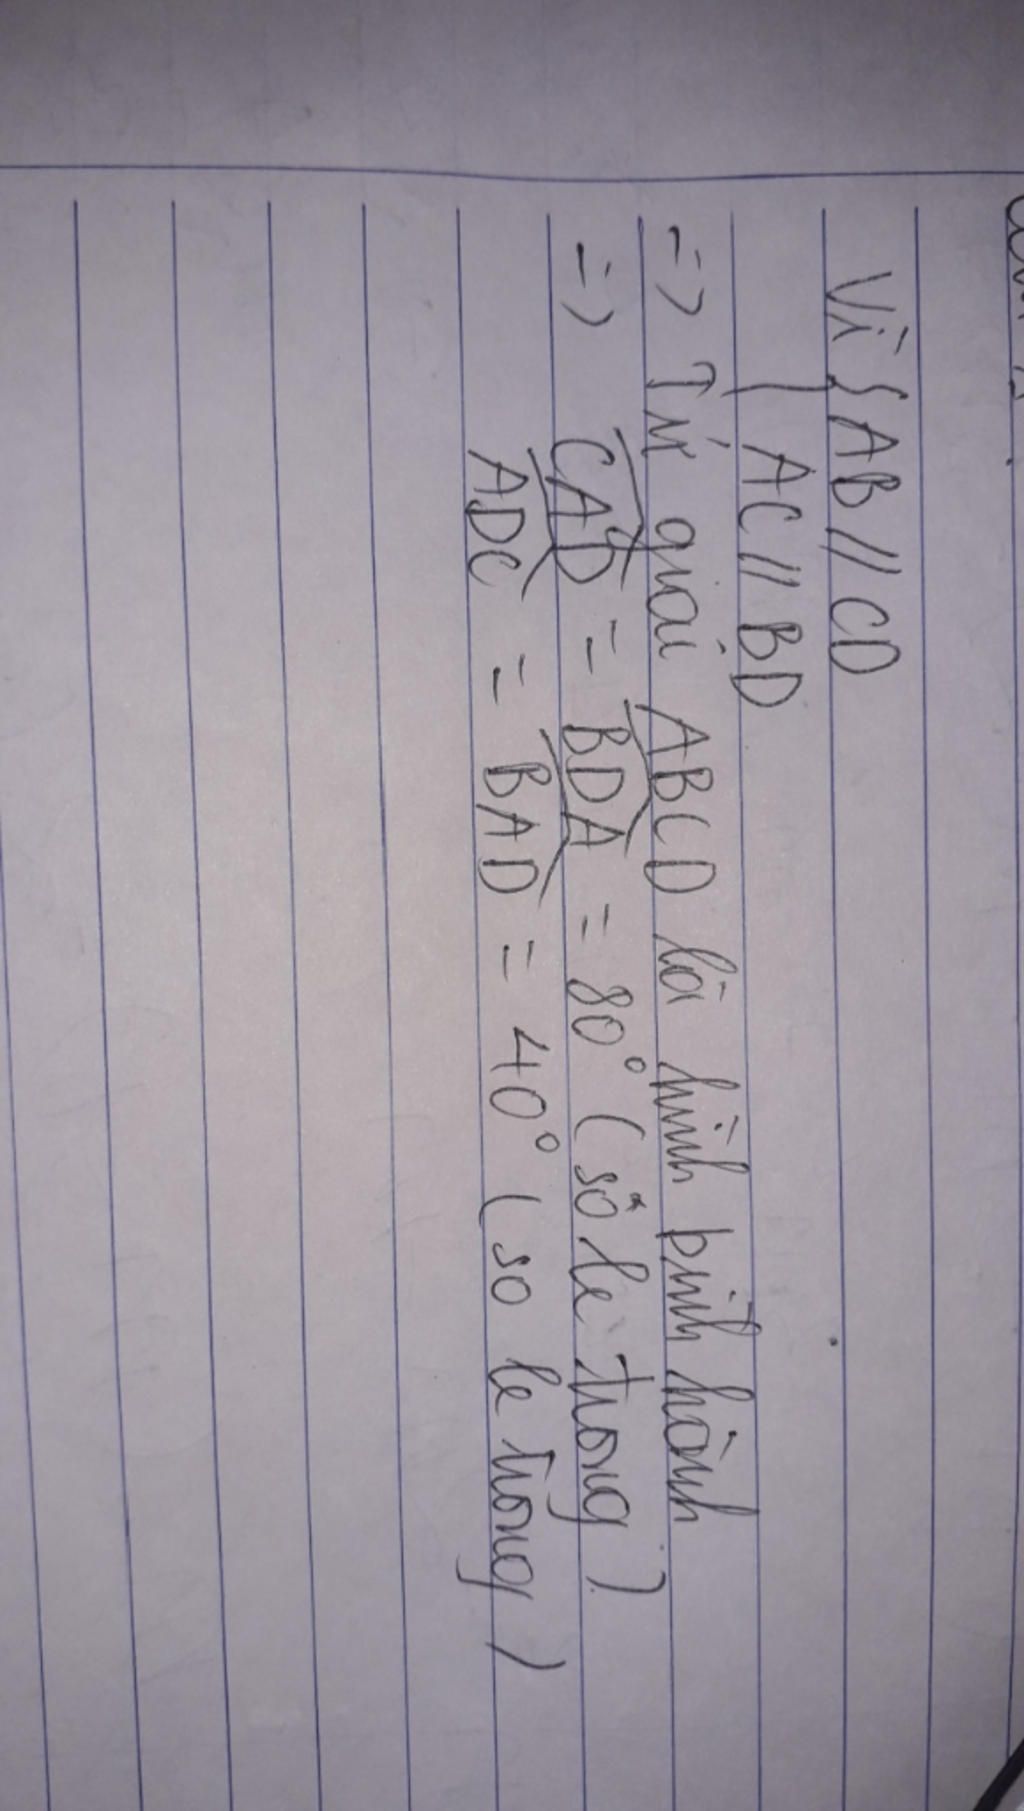 Vì { AB // CD
AC // BD
=> Tứ giác ABCD là hình bình hành
=> CAD = BDA = 80° (sô le trong)
ADC = BAD = 40° (so le trong)